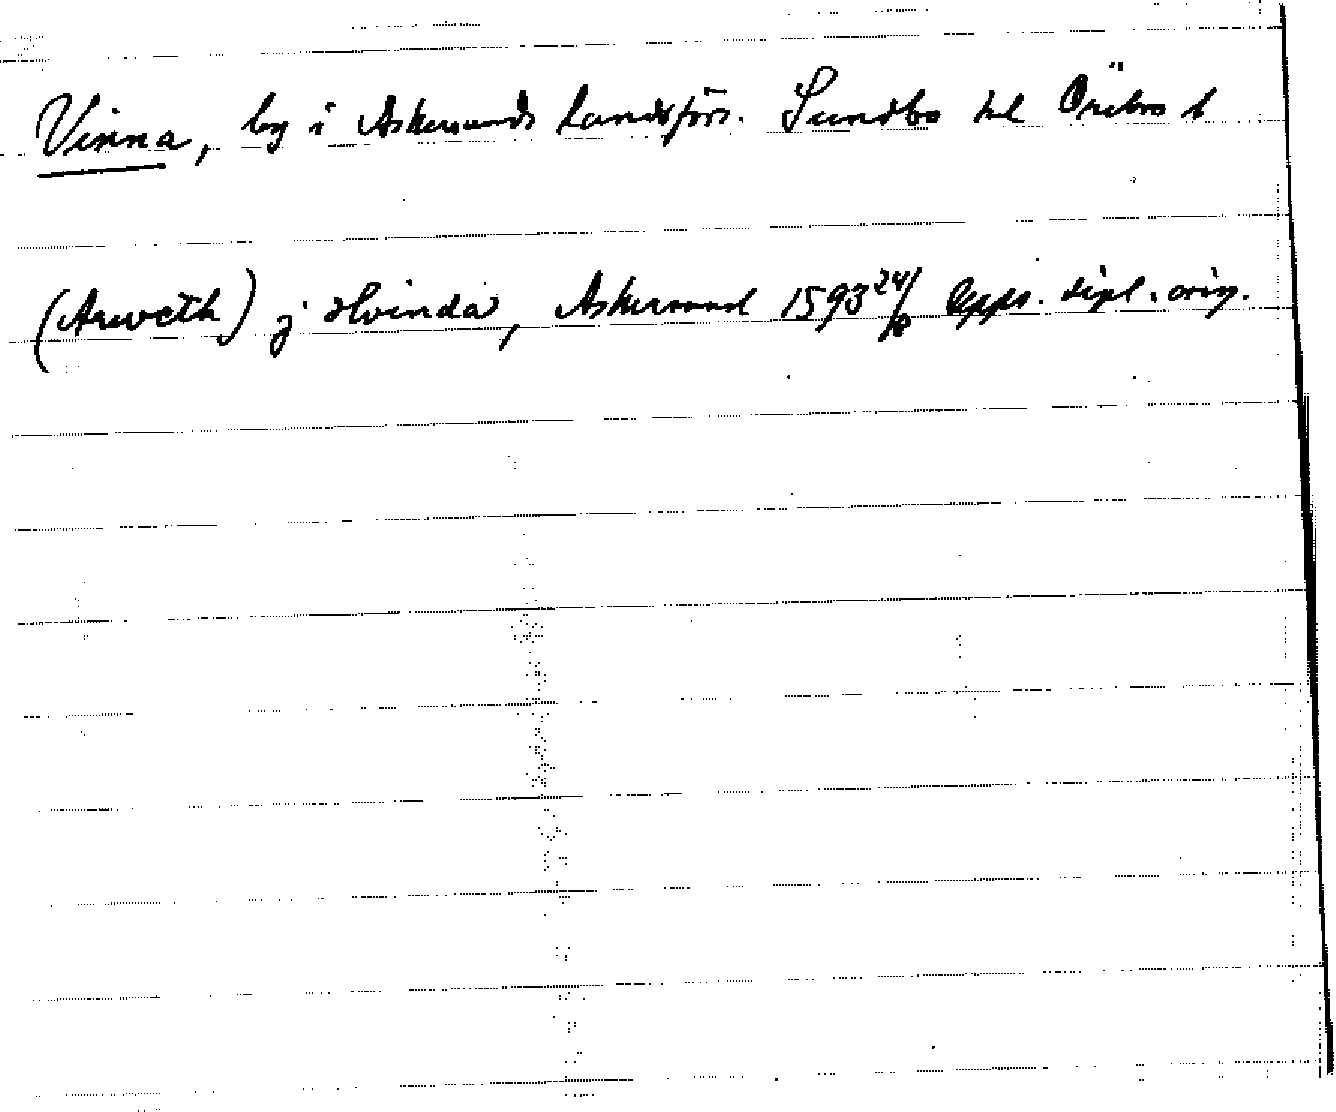 Vinna, by i Askersunds landsförs. Sundbo hd Örebro l
(Arweth) j Hvinda, Askersund 1593 24/8 Upps. dipl. orig.